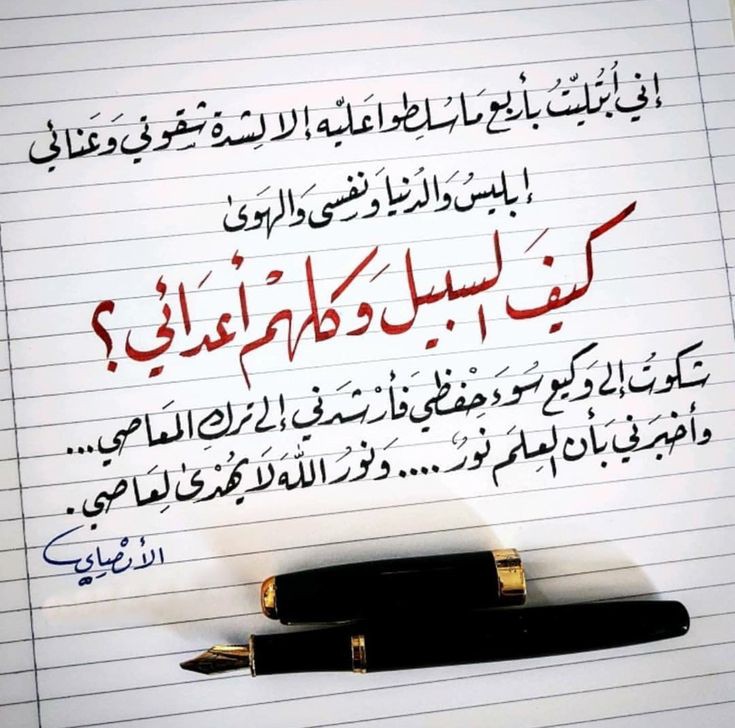 إني ابتُليتُ بأربع مَا سُلطوا عَليّه إلا لِشدة شِقوتي وَعَنائي
إبليسُ وَالدُنياَ وَنفِسي وَالهَوىٰ
كيفَ السبيل وَكلهمْ أعدَائي؟
شكوتُ إلى وَكيع سُوءَ حِفظي فَأرْشدَني إلى تركِ المَعاصي...
وأخبرَني بَأن العِلمَ نورٌ .... وَنورُ اللّه لَا يهُدىٰ لِعَاصي.